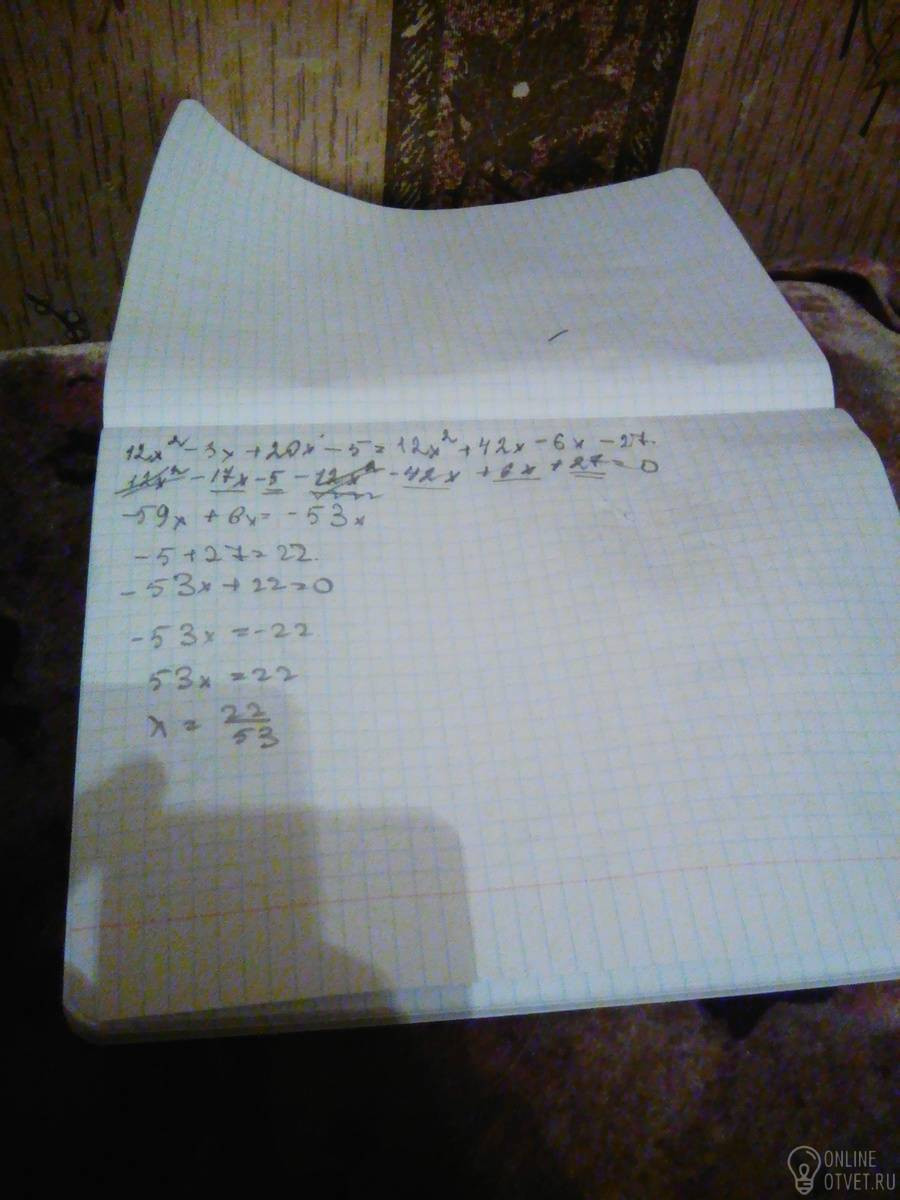 12x² - 3x + 20x - 5 = 12x² + 42x - 6x - 27.
12x² - 17x - 5 - 12x² - 42x + 6x + 27 = 0
-59x + 6x = -53x
-5 + 27 = 22.
-53x + 22 = 0
-53x = -22
53x = 22
x = 22/53
ONLINE
OTVET.RU